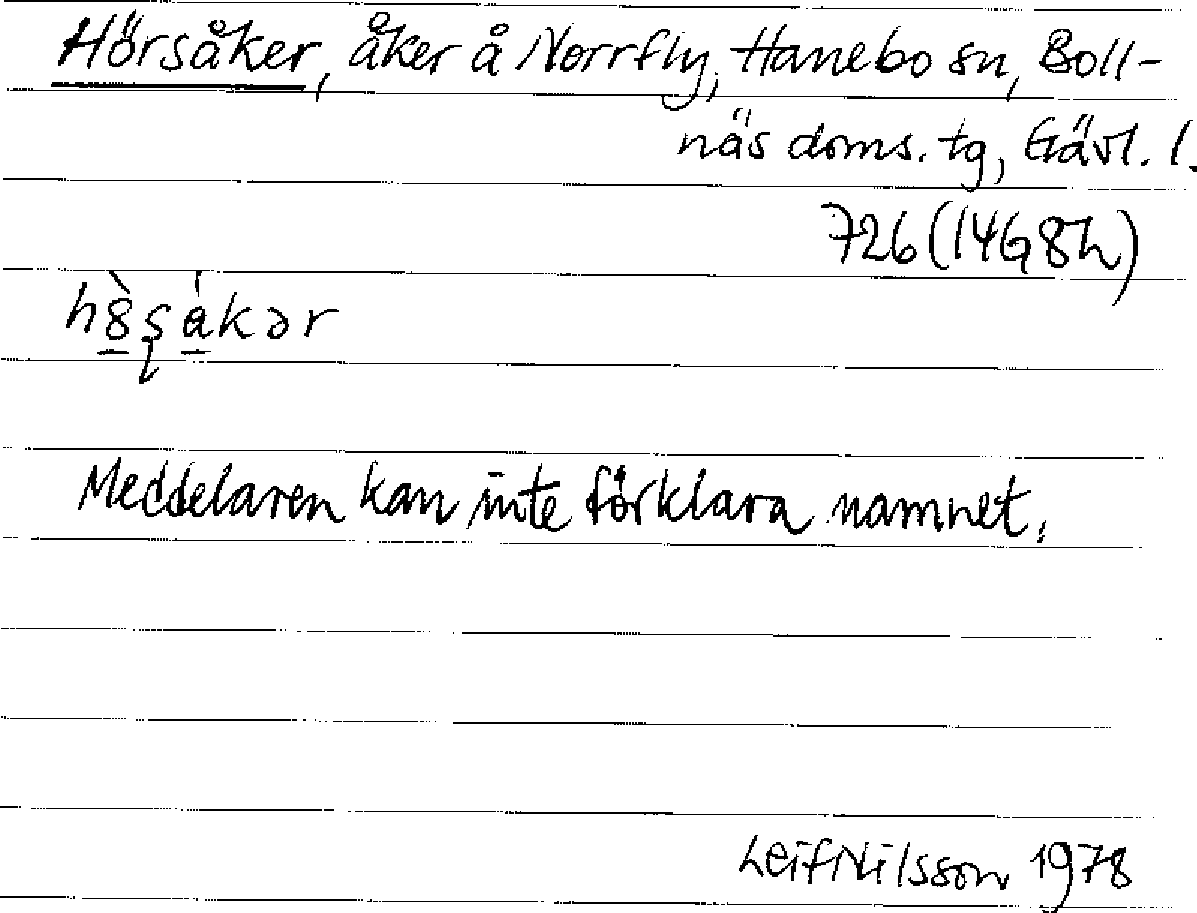 Hörsåker, åker å Norrfly, Hanebo sn, Boll-
näs doms. tg, Gävl. l.
726 (14G8h)
h8̀ʂákər
Meddelaren kan inte förklara namnet.
Leif Nilsson 1978